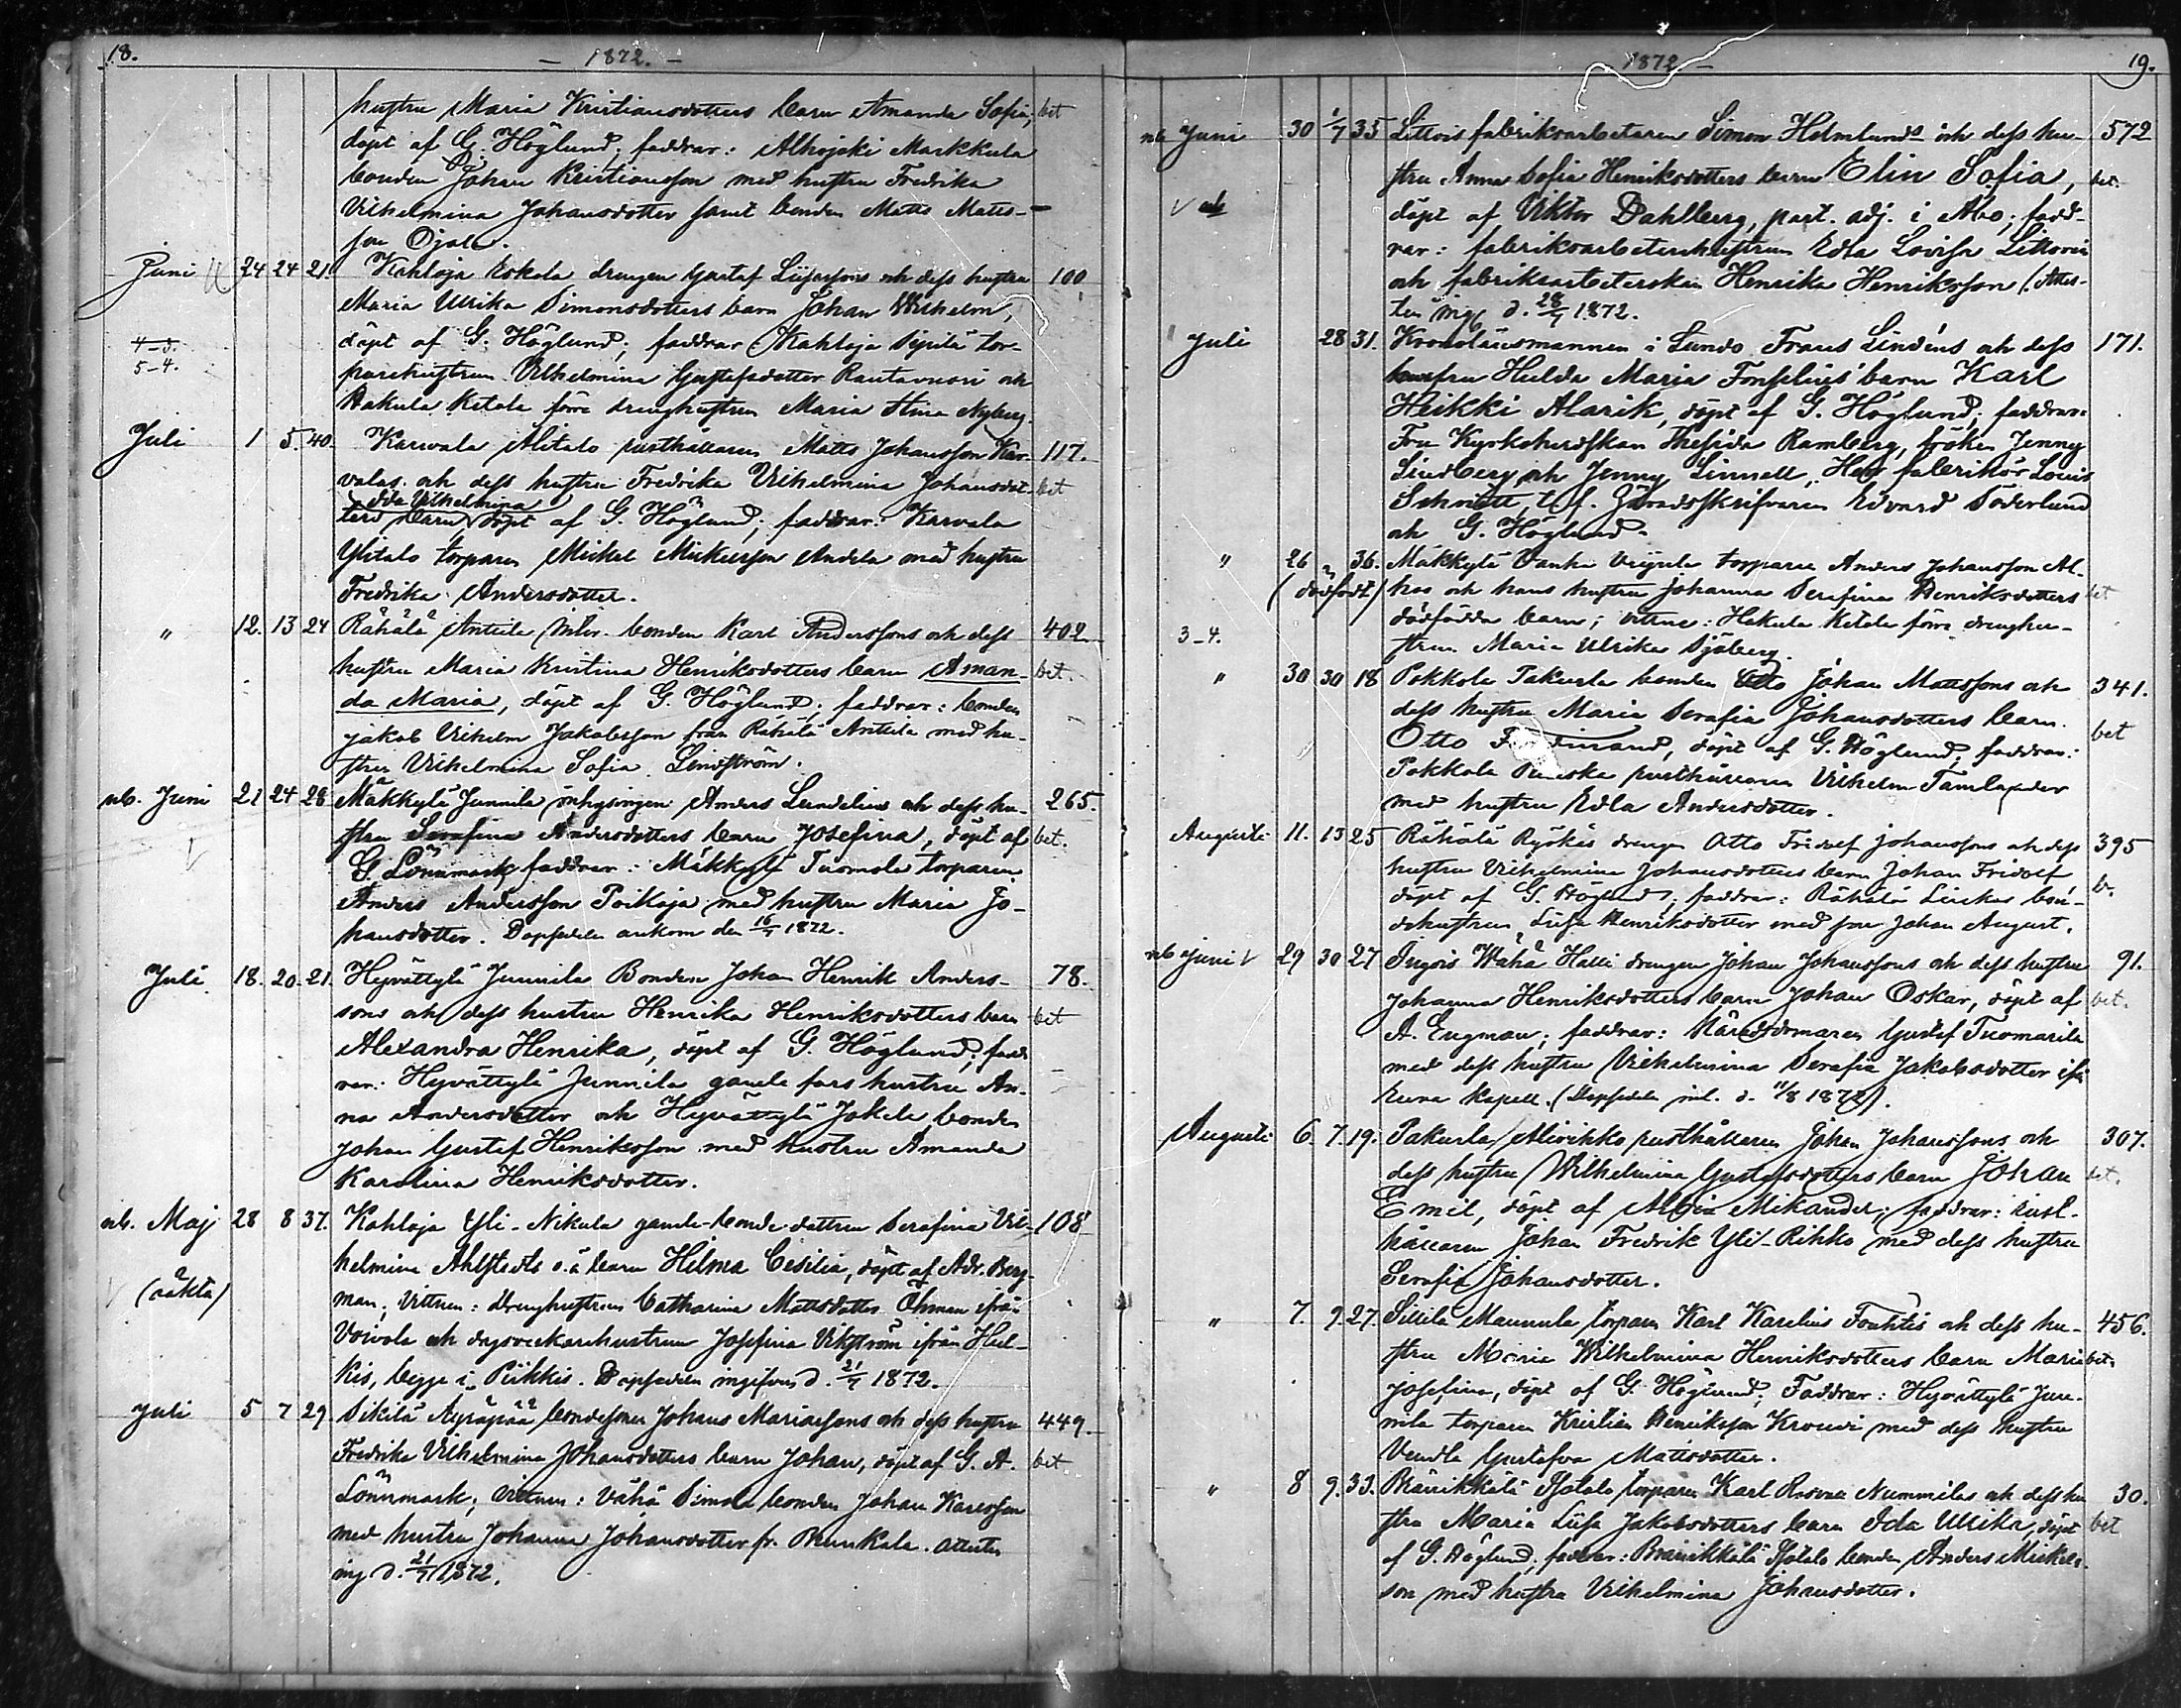 18.
— 1872. —
hustru Maria Kristiansdotters barn Amanda Sofia, bet
döpt af G. Höglund; faddrar: Alhojoki Markkula
bonden Johan Kristiansson med hustru Fredrika
Vilhelmina Johansdotter samt bonden Matts Matts-
son Ojala.
Juni 24 24 21. Kahloja Eskola drengen Gustaf Liljeforss och dess hustru 100
Maria Ulrika Simonsdotters barn Johan Wilhelm,
4-3. döpt af G. Höglund; faddrar Kahloja Sipilä tor-
5-4. parehustrun Vilhelmina Gustafsdotter Rautavuori och
Hakula Ketola förre drenghustrun Maria Stina Nyberg.
Juli 1 5. 40. Karvala Alitalo rusthållaren Matts Johansson Kar- 117.
valas och dess hustru Fredrika Vilhelmina Johansdot- bet
Ida Vilhelmina
ters barn döpt af G. Höglund; faddrar: Karvala
Ylitalo torparen Mickel Mickelsson Andela med hustru
Fredrika Andersdotter.
" 12. 13 24 Rähälä Anttila bonden Karl Anderssons och dess 402
hustru Maria Kristina Henriksdotters barn Aman- bet.
da Maria, döpt af G. Höglund; faddrar: bonden
Jakob Vilhelm Jakobsson från Rähälä Anttila med hu-
stru Vilhelmina Sofia Lindström.
nb. Juni 21 24 28 Mäkkylä Junnila inhysingen Anders Lundelius och dess hu- 265.
stru Serafina Andersdotters barn Josefina, döpt af bet.
G. Lönnmark faddrar: Mäkkylä Tuomola torparen
Anders Andersson Poikoja med hustru Maria Jo-
hansdotter. Dopsedeln ankom den 16/7 1872.
Juli 18. 20. 21. Hyvättylä Junnila Bonden Johan Henrik Anders- 78.
sons och dess hustru Henrika Henriksdotters barn bet
Alexandra Henrika, döpt af G. Höglund; fadd-
rar: Hyvättylä Junnila gamle fars hustru An-
na Andersdotter och Hyvättylä Jokela bonden
Johan Gustaf Henriksson med hustru Amanda
Karolina Henriksdotter.
nb. Maj 28 8 37. Kahloja Yli-Nikula gamle-bonde-dottren Serafina Vil- 108
helmina Ahlstedts o.ä. barn Hilma Cesilia, döpt af Adr. Berg-
(oäkta) man; Vittnen: Drenghustrun Catharina Mattsdotter Öhman ifrån
Voivola och dagsverkarehustrun Josefina Vikström ifrån Hul-
kis, begge i Piikkis. Dopsedeln ingifven d. 21/7 1872.
Juli 5 7 29 Sikilä Äyräpää bondesonen Johans Mariassons och dess hustru 449.
Fredrika Vilhelmina Johansdotters barn Johan, döpt af G. A. bet
Lönnmark; Vittnen: Vähä Simola bonden Johan Karlsson
med hustru Johanna Johansdotter fr. Prunkala. Attesten
ing d. 21/7 1872.
1872. —
19.
nb Juni 30 1/7 35 Littois fabriksarbetaren Simon Holmlunds och dess hu- 572
stru Anna Sofia Henriksdotters barn Elin Sofia, bet.
döpt af Viktor Dahlberg, past. adj. i Åbo; fadd-
rar: fabriksarbetarehustrun Edla Lovisa Littovin
och fabriksarbeterskan Henrika Henriksson (Attes-
ten ing d. 28/7 1872.
Juli 28 31. Kronolänsmannen i Lundo Frans Lindéns och dess 171.
fru Hulda Maria Fonselius' barn Karl
Heikki Alarik, döpt af G. Höglund; faddrar:
Fru Kyrkoherdskan Ramberg, fröken Jenny
Lindberg och Jenny Linnell, Herr fabrikör Louis
Schnitt, t.f. Häradsskrifvaren Edvard Söderlund
och G. Höglund.
" 26 " 36. Mäkkylä Vanha torparen Anders Johansson Al-
(dödfödt) hos och hans hustru Johanna Serafina Henriksdotters bet
dödfödda barn; vittne: Hakula Ketola förre drenghu-
3-4. strun Maria Ulrika Sjöberg.
" 30 30 18 Pokkola Takula bonden Otto Johan Mattssons och 341.
dess hustru Maria Serafia Johansdotters barn bet
Otto Ferdinand, döpt af G. Höglund; faddrar:
Pokkola rusthållaren Vilhelm Tamlander
med hustru Edla Andersdotter.
Augusti 11. 13 25 Rähälä Ryökäs drengen Otto Fridolf Johanssons och dess 395
hustru Vilhelmina Johansdotters barn Johan Fridolf b.
döpt af G. Höglund; faddrar: Rähälä bon-
dehustrun Lisa Henriksdotter med son Johan August.
nb Juni 29 30 27 Ingois Wähä Halli drengen Johan Johanssons och dess hustru 91.
Johanna Henriksdotters barn Johan Oskar, döpt af bet.
A. Engman; faddrar: Häradsdomaren Gustaf Tuomarila
med dess hustru Vilhelmina Serafia Jakobsdotter ifr.
Kapell. (Dopsedeln inl. d. 11/8 1872).
Augusti 6. 7. 19. Pakurla Alirikko rusthållaren Johan Johanssons och 307.
dess hustru Wilhelmina Gustafsdotters barn Johan bet.
Emil, döpt af Albin Mikander; faddrar: rust-
hållaren Johan Fredrik Yli-Rikko med dess hustru
Serafia Johansdotter.
" 7. 9. 27. Sikilä Maunula torparen Karl Karelius Fontitis och dess hu- 456.
stru Maria Wilhelmina Henriksdotters barn Maria bet.
Josefina, döpt af G. Höglund; Faddrar: Hyvättylä Jun-
nila torparen Kristian Henriksson Krouvi med dess hustru
Vendla Gustafva Mattsdotter.
" 8 9. 33. Bränikkälä Isotalo torparen Karl Nummilas och dess hu 30.
stru Maria Liisa Jakobsdotters barn Ida Ulrika, döpt bet
af G. Höglund; faddrar: Bränikkälä Isotalo bonden Anders Mickels-
son med hustru Vilhelmina Johansdotter.